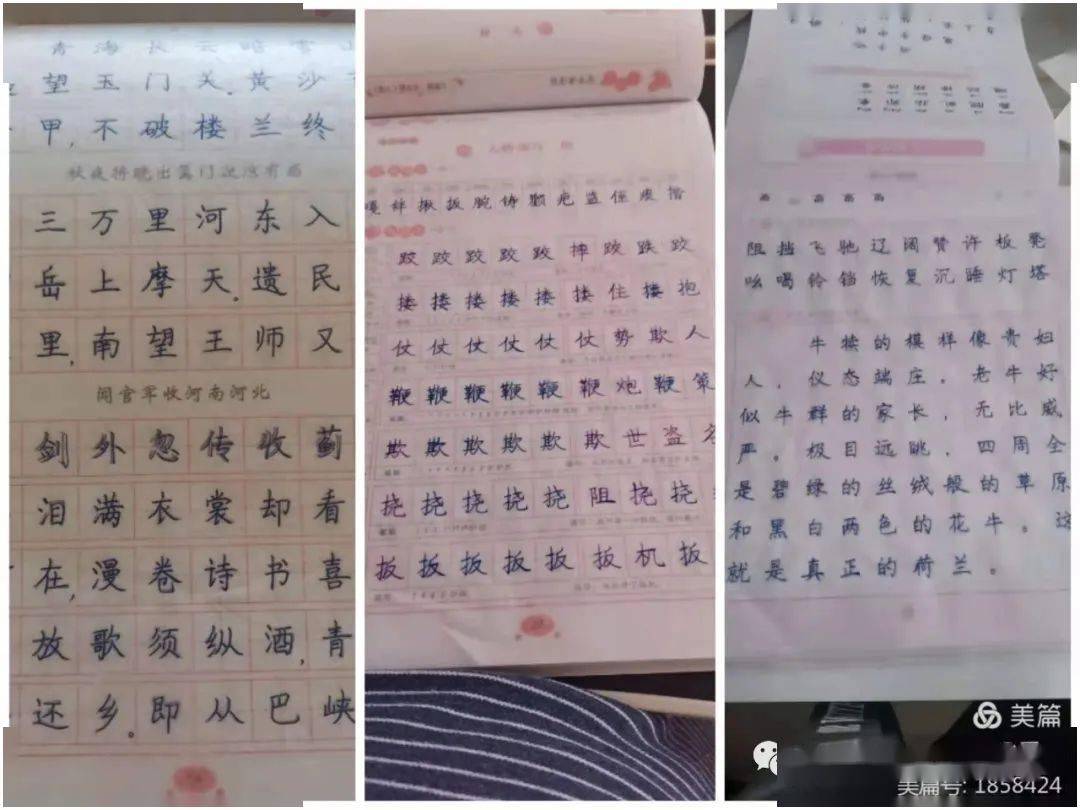 青海长云暗雪山
望玉门关。黄沙
甲,不破楼兰终
秋夜将晓出篱门迎凉有感
三万里河东入
岳上摩天。遗民
里,南望王师又
闻官军收河南河北
剑外忽传收蓟
泪满衣裳却看
在,漫卷诗书喜
放歌须纵酒,青
还乡。即从巴峡
绊揪扳腕铸颗疤监侄疲惜
跤跤跤跤跤摔跤跌跤
搂搂搂搂搂搂住搂抱
仗仗仗仗仗仗势欺人
鞭鞭鞭鞭鞭鞭炮鞭策
欺欺欺欺欺欺世盗名
挠挠挠挠挠阻挠挠
扳扳扳扳扳扳机扳
阻挡飞驰辽阔赞许板凳
吆喝铃铛恢复沉睡灯塔
牛犊的模样像贵妇
人,仪态端庄。老牛好
似牛群的家长,无比威
严。极目远眺,四周全
是碧绿的丝绒般的草原
和黑白两色的花牛。这
就是真正的荷兰。
美篇
美篇号: 1858424